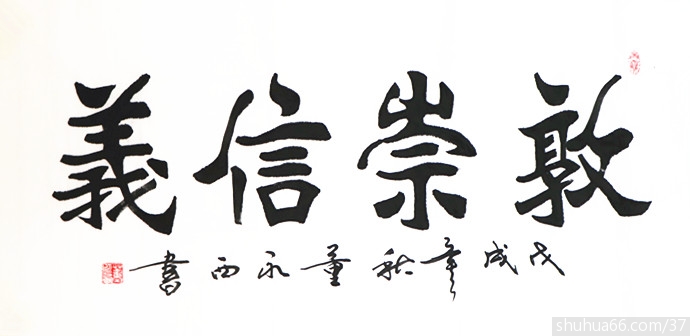 敦崇信義
戊戌年秋董永西書
shuhua66.com/37